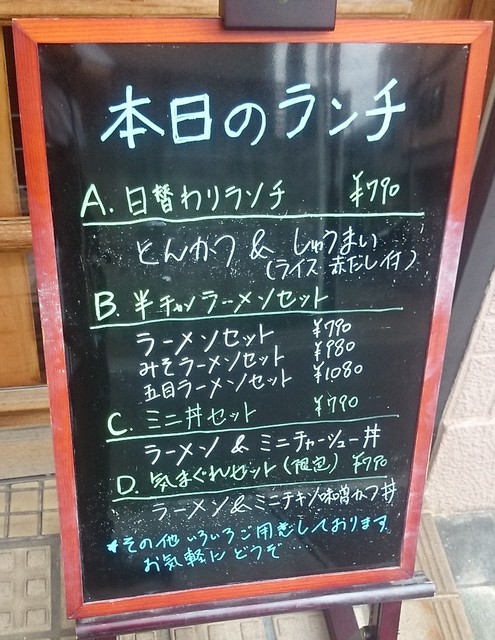 本日のランチ
A. 日替わりランチ ¥790
とんかつ & しゅうまい
(ライス 赤だし付)
B. 半チャンラーメンセット
ラーメンセット ¥790
みそラーメンセット ¥980
五目ラーメンセット ¥1080
C. ミニ丼セット ¥790
ラーメン & ミニチャーシュー丼
D. 気まぐれセット (限定) ¥790
ラーメン&ミニチキン味噌カツ丼
*その他いろいろご用意しております
お気軽にどうぞ....